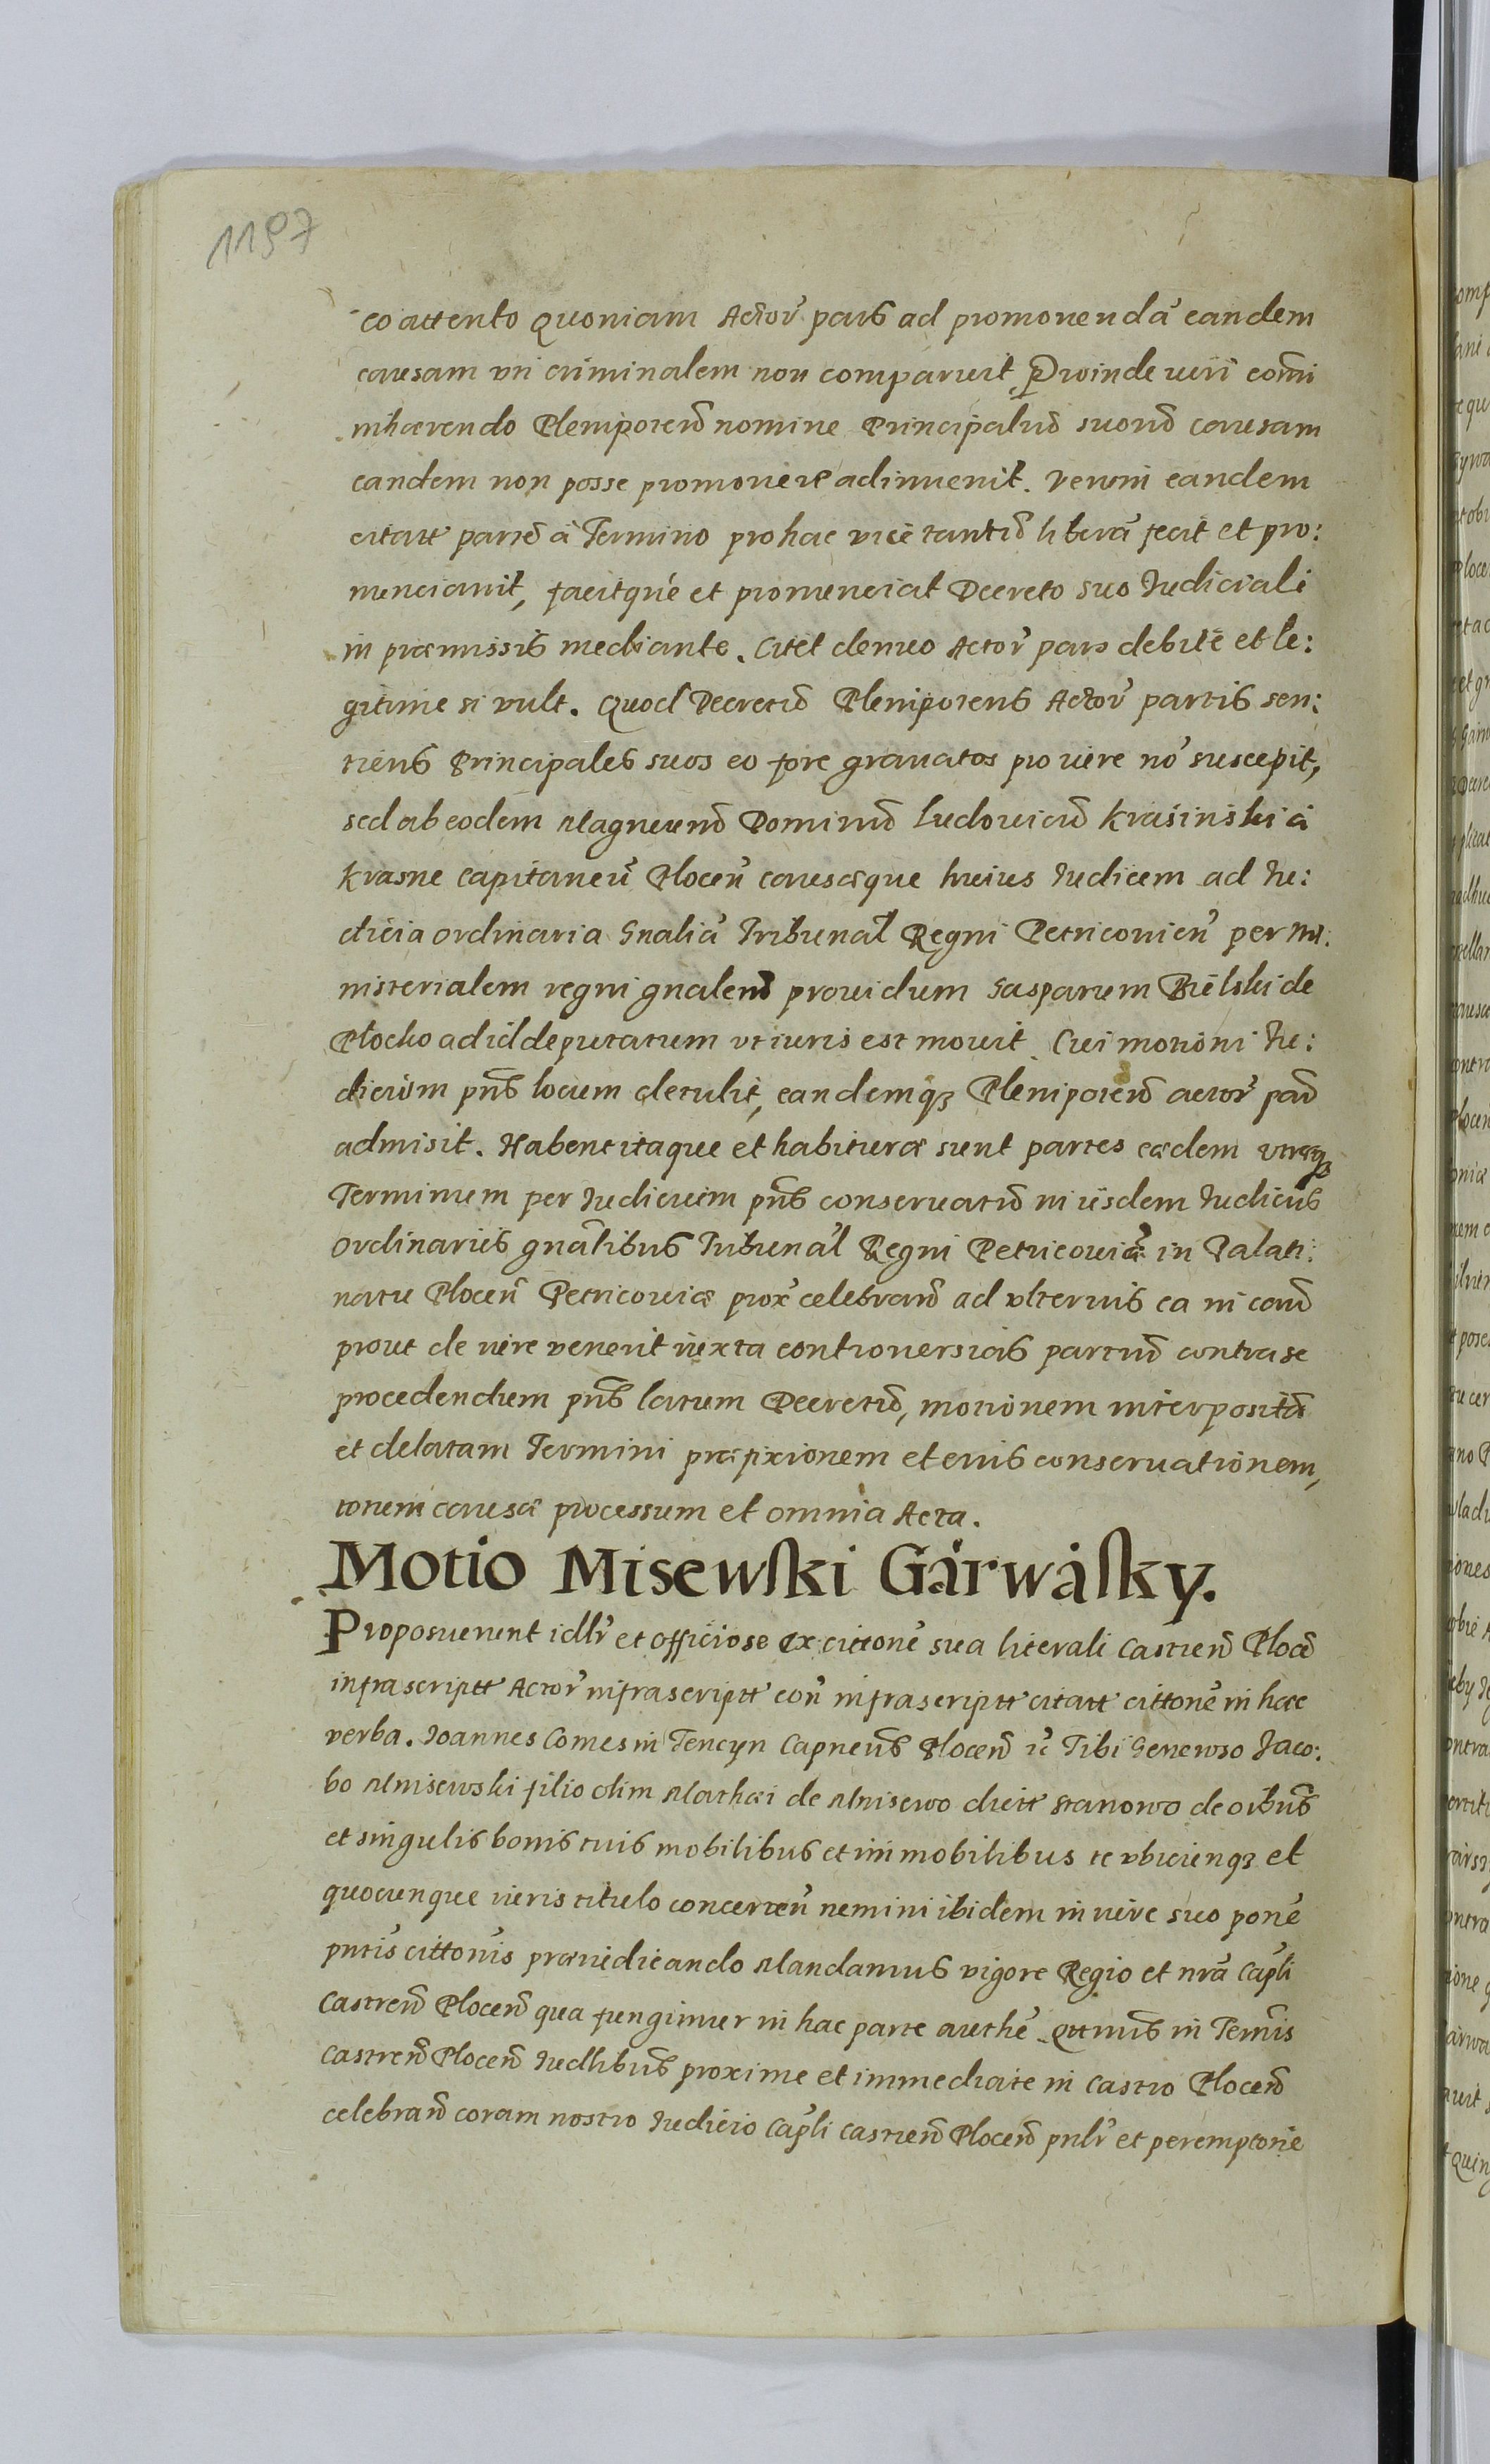 1197
eo attento Quoniam Actor̃ pars ad promouendã eandem
causam vti criminalem non comparuit, Proinde iuri com̃i
inhærendo Plenipoten̄ nomine Principaliũ suorũ causam
eandem non posse promouere adinuenit. Verum eandem
citatt partẽ à Termino pro hac vicẽ tantũ liberã fecit et pro:
nunciauit, facitqué et pronunciat Decreto suo Iudiciali
in præmissis mediante. Citet denuo Actor̃ pars debitè et le:
gitime si vult. Quod Decretũ Plenipotens Actor̃ partis sen:
tiens Principales suos eo fore grauatos pro iure nõ suscepit,
sed ab eodem Magneum̃ Dominũ Ludouicũ Krasinski à
Krasne Capitaneũ Plocen̄ causæque huius Iudicem ad Iu:
dicia ordinaria Gnalia Tribunal Regni Petricouien̄ per Mi:
nisterialem regni gnalem̃ prouidum Gasparum Bielski de
Plocko ad id deputatum vt iuris est mouit. Cui motioni Iu:
dicium pn̄s locum detulit, eandemq3 Plenipoten̄ actor̃ par̃
admisit. Habent itaque et habituræ sunt partes eædem vtræq3
Terminum per Iudicium pn̄s conseruatũ in iisdem Iudiciis
Ordinariis gnãlibus Tribunãl Regni Petricouiæ in Palati:
natu Plocen̄ Petricouiæ prox̃ celebran̄ ad vlterius ea in cau̅
prout de iure venerit iuxta controuersias partiũ contra se
procedendum pn̄s latum Decretũ, motionem interpositã
et delatam Termini præfixionem et eius conseruationem,
totum causæ processum et omnia Acta.
Motio Misewski Gårwåsky.
Proposuerunt idlr̃ et officiose ex cittone sua literali Castren̄ Plocen̄
infrascriptt Actor̃ infrascriptt con̄ infrascriptt citatt cittonẽ in hæc
verba. Ioannes Comes in Tencyn Capneus̄ Plocen̄ ic̃ Tibi Generoso Iaco:
bo Mnisewski filio olim Mathæi de Mnisewo dictt Stanowo de oibus̃
et singulis bonis tuis mobilibus et immobilibus te vbicunq3 et
quocunque iuris titulo concerten̄ nemini ibidem in iure suo ponẽ
pntis̃ cittonis̃ præiudicando Mandamus vigore Regio et nrã Capl̃i
Castren̄ Plocen̄ qua fungimur in hac parte authẽ. Qttnus̃ in Terñis
Castren̄ Plocen̄ Iudlibus̃ proxime et immediate in Castro Plocen̄
celebran̄ coram nostro Iudicio Capl̃i Castren̄ Plocen̄ pnlr̃ et peremptorie